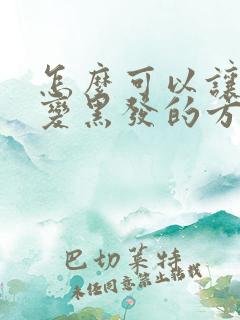 怎麼可以讓
變黑發的方
巴切萊特
未经同意禁止转载